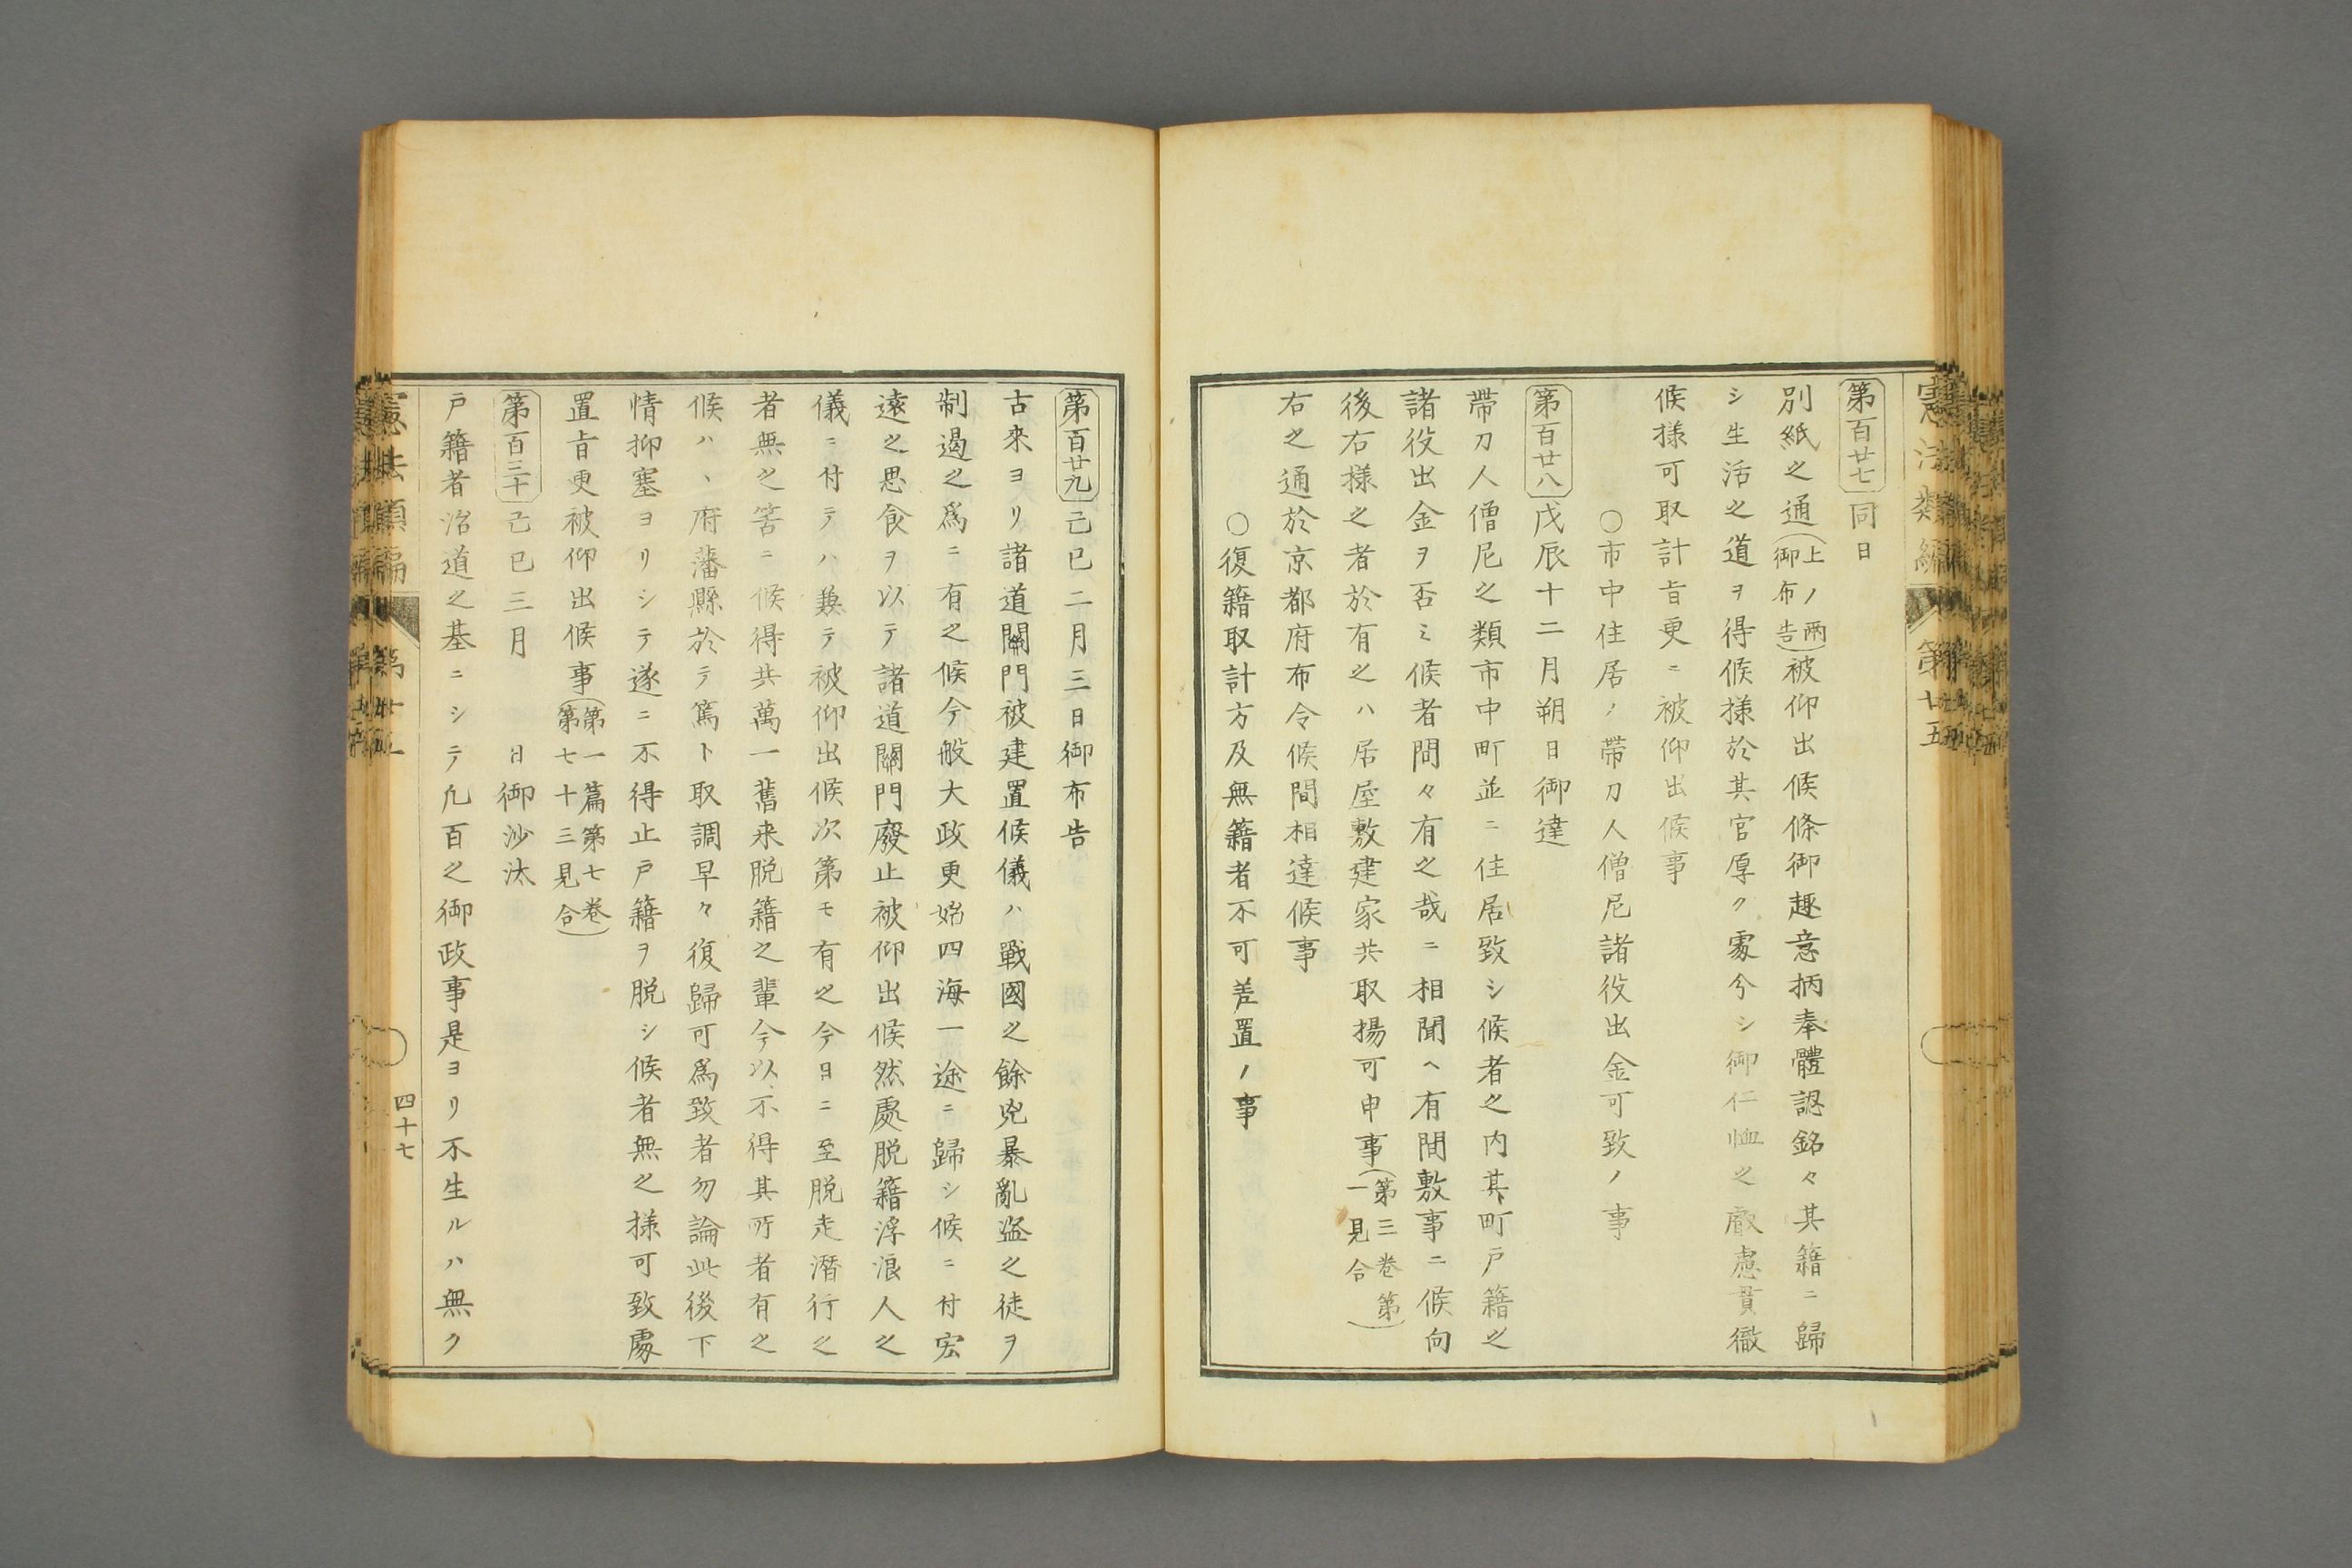 第百廿七 同日
別紙之通(上ノ兩御布告)被仰出候條御趣意柄奉體認銘々其籍ニ歸
シ生活之道ヲ得候様於其官厚ク處分シ御仁恤之叡慮貫徹
候様可取計旨更ニ被仰出候事
〇市中住居ノ帶刀人僧尼諸役出金可致ノ事
第百廿八 戊辰十二月朔日御達
帶刀人僧尼之類市中町並ニ住居致シ候者之内其町戸籍之
諸役出金ヲ否ミ候者間々有之哉ニ相聞ヘ有間敷事ニ候向
後右様之者於有之ハ居屋敷建家共取揚可申事(第三卷第一見合)
右之通於京都府布令候間相達候事
〇復籍取計方及無籍者不可差置ノ事
憲法類編 第十五
第百廿九 己巳二月三日御布告
古來ヨリ諸道關門被建置候儀ハ戰國之餘兇暴亂盗之徒ヲ
制遏之爲ニ有之候今般大政更始四海一途ニ歸シ候ニ付宏
遠之思食ヲ以テ諸道關門廢止被仰出候然處脱籍浮浪人之
儀ニ付テハ兼テ被仰出候次第モ有之今日ニ至脱走潜行之
者無之筈ニ候得共萬一舊来脱籍之輩今以不得其所者有之
候ハヽ府藩縣於テ篤ト取調早々復歸可爲致者勿論此後下
情抑塞ヨリシテ遂ニ不得止戸籍ヲ脱シ候者無之様可致處
置旨更被仰出候事(第一篇第七卷第七十三見合)
第百三十 己巳三月 日御沙汰
戸籍者治道之基ニシテ凡百之御政事是ヨリ不生ルハ無ク
四十七